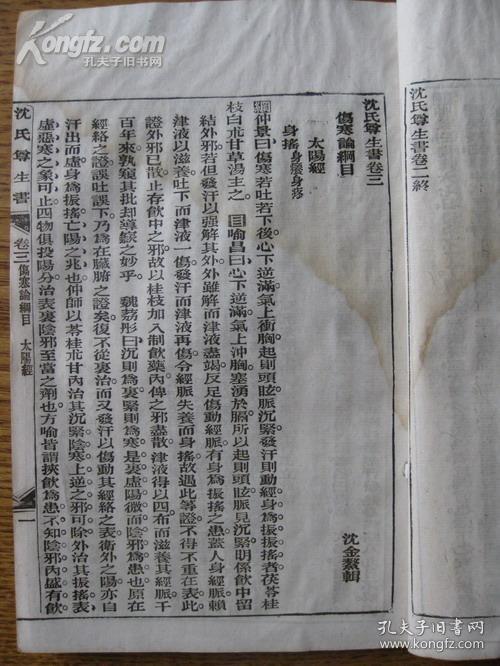 Kongfz.com
孔夫子旧书网
沈氏尊生書卷二終
沈氏尊生書卷三
傷寒論綱目
沈金鰲輯
太陽經
身搖 身瘈身疼
綱仲景曰傷寒若吐若下後心下逆滿氣上衝胸起則頭眩脈沉緊發汗則動經身爲振振搖者茯苓桂
枝白朮甘草湯主之 目喻昌曰心下逆滿氣上沖胸塞湧於膈所以起則頭眩脈見沉緊明係飲中留
結外邪若但發汗以強解其外外雖解而津液盡竭反足傷動經脈有身爲振搖之患蓋人身經脈賴
津液以滋養吐下而津液一傷發汗而津液再傷令經脈失養而身搖故遇此等證不得不重在表此
證外邪已散止存飲中之邪故以桂枝加入制飲藥內俾之邪盡散津液得以四布而滋養其經脈千
百年來孰窺其批卻導窾之妙乎 魏荔彤曰沉則爲裏緊則爲寒是裏虛陽微而陰邪爲患也原在
經絡之證誤吐誤下乃爲在臟腑之證矣復不從裏治而又發汗以傷動其經絡之表衛外之陽亦自
汗出而虛身爲振搖亡陽之兆也仲師以苓桂朮甘內治其沉緊陰寒上逆之邪可除外治其振搖表
虛惡寒之象可止四物俱投陽分治表裏陰邪至當之劑也方喻皆謂挾飲爲患不知陰邪內盛有飲
沈氏尊生書
卷三傷寒論綱目 太陽經
一
Kongfz.com
孔夫子旧书网